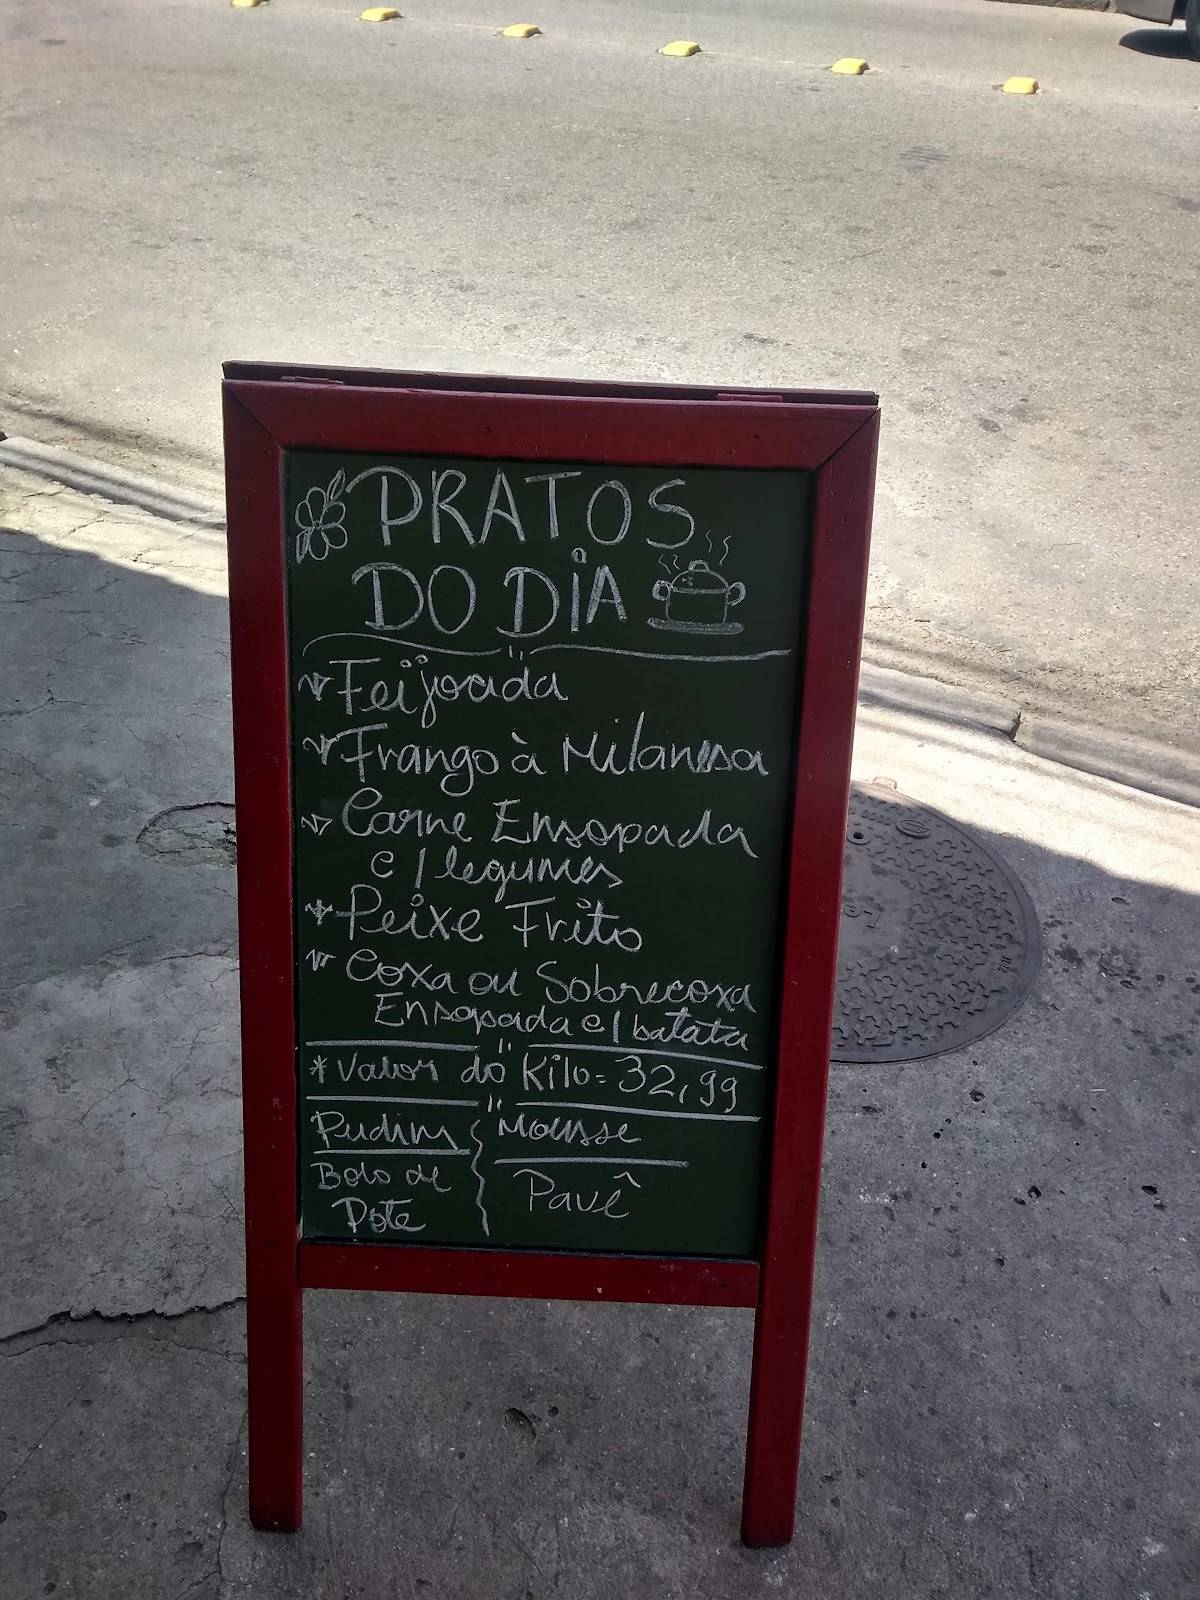 PRATOS
DO DIA
Feijoada
Frango à Milanesa
Carne Ensopada
c/legumes
Peixe Frito
Coxa ou Sobrecoxa
Ensopada c/batata
*Valor do Kilo= 32,99
Pudim
Mousse
Bolo de
Pote
Pavê